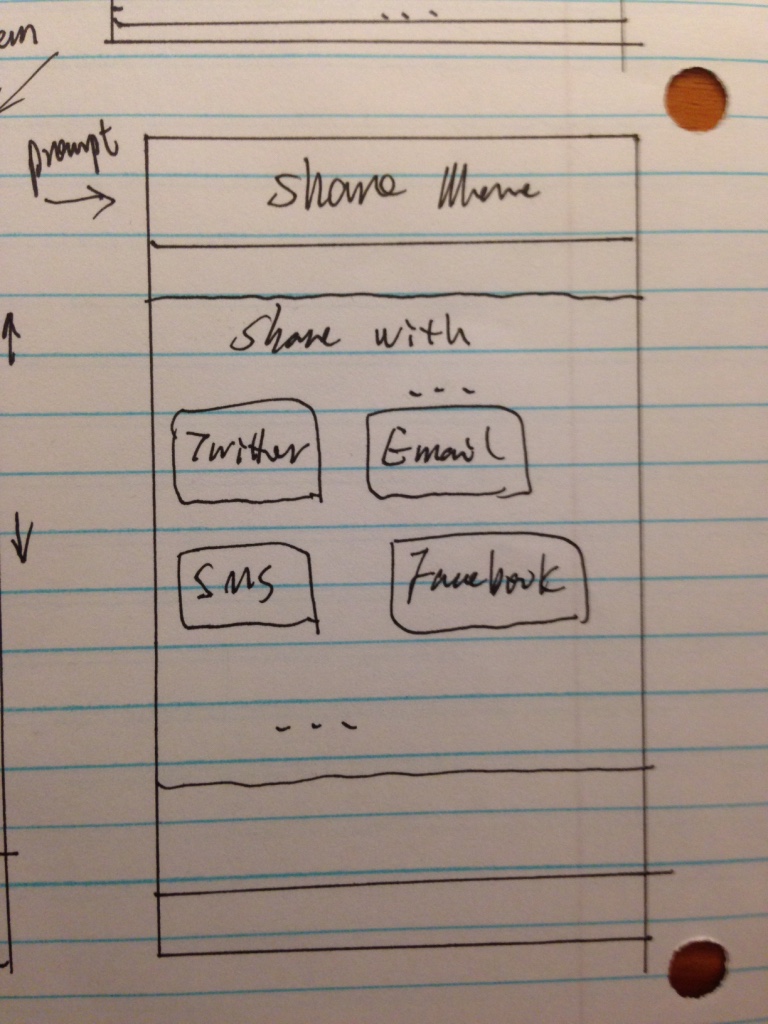 ...
prompt
Share
Share with
...
Twitter Email
SMS Facebook
...